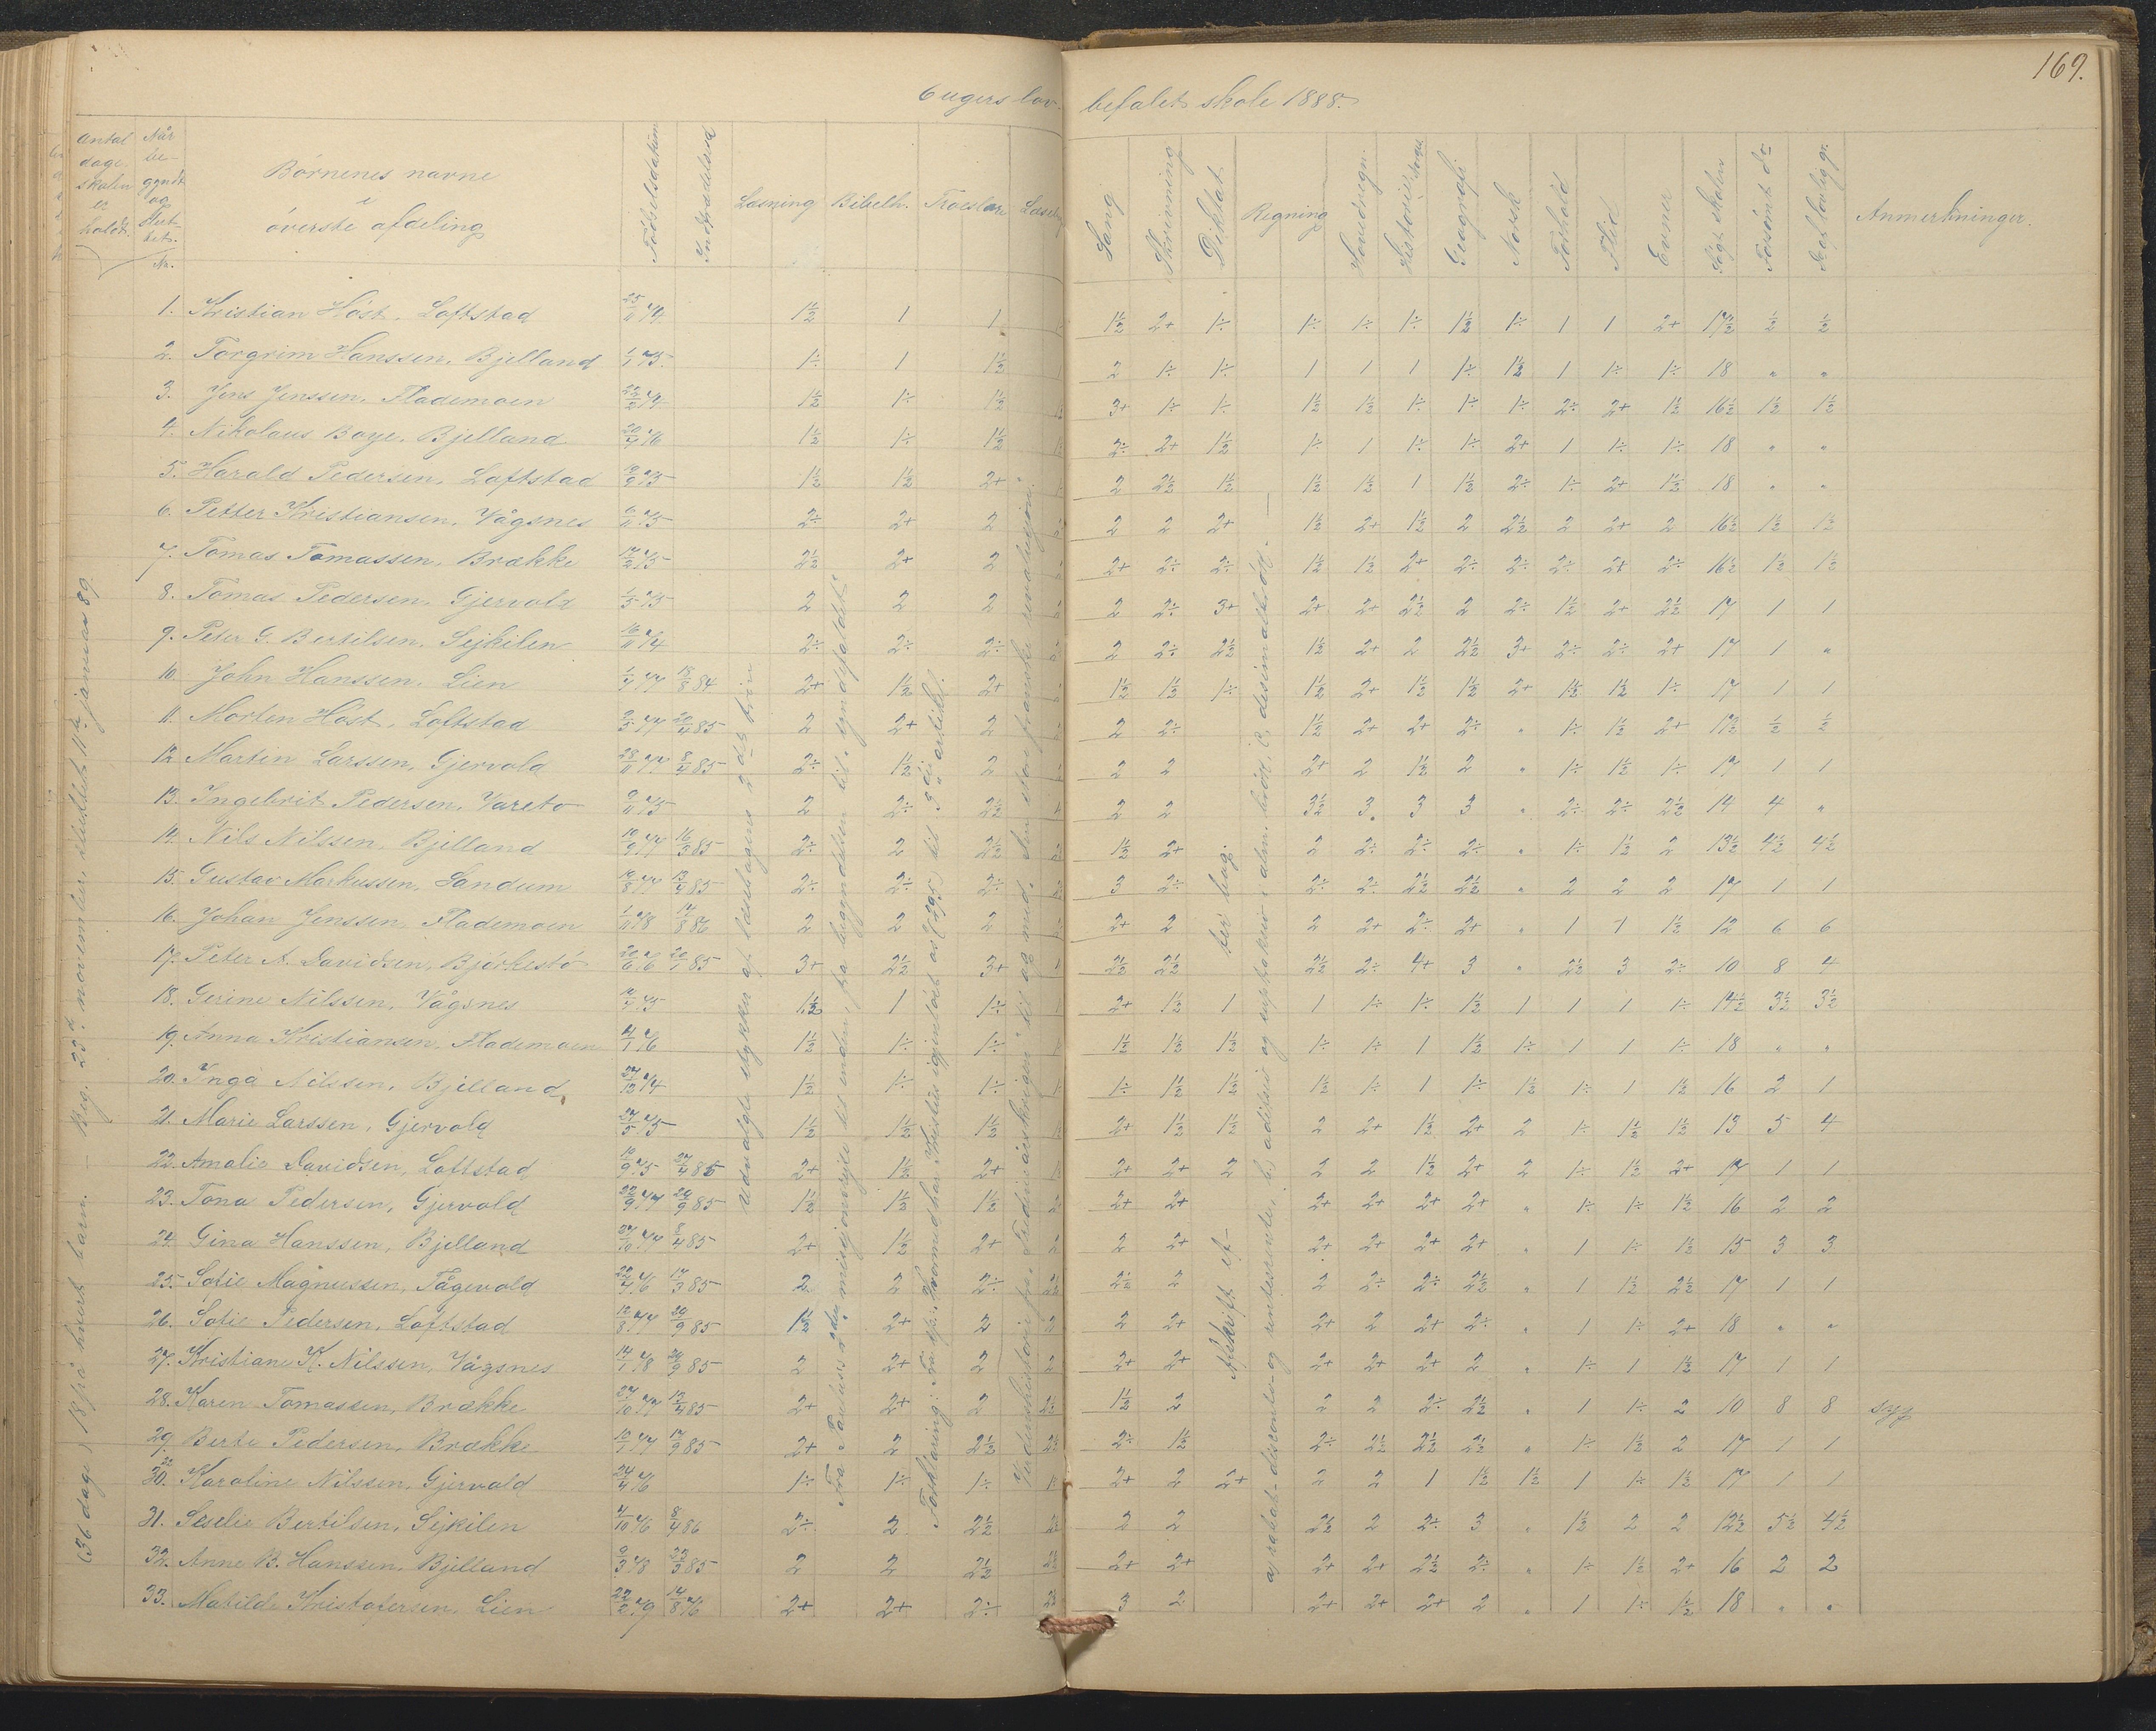 169.
6 ugers lov-
befalet skole 1888.
Antal dage skolen er holdt.
Når be- gyndt og slut- tet.
Børnenes navne i øverste afdeling
Fødselsdatum
Indtrædelsesd
Læsning
Bibelh.
Troeslære
Sang
Skrivning
Diktat
Regning
Hovedregn.
Historie
Geografi
Norsk
Forhold
Flid
Evner
Søgt skolen
Forsømt do
Anmerkninger.
Nr.
1. Kristian Høst, Loftstad 25/11 74 1½ 1 1 1½ 2+ 1÷ 1÷ 1÷ 1÷ 1½ 1÷ 1 1 2+ 17½ ½ ½
2. Torgrim Hanssen, Bjelland 1/1 75 1÷ 1 1½ 2 1÷ 1÷ 1 1 1 1÷ 1½ 1 1÷ 1÷ 18 " "
3. Jens Jenssen, Flademoen 1½ 1÷ 1½ 3+ 1÷ 1÷ 1½ 1½ 1÷ 1÷ 1÷ 2÷ 2+ 1½ 16½ 1½ 1½
4. Nikolaus Boye, Bjelland 20/4 76 1½ 1÷ 1½ 2÷ 2+ 1½ 1÷ 1 1÷ 1÷ 2+ 1 1÷ 1÷ 18 " "
5. Harald Pedersen, Loftstad 1½ 1½ 2+ 2 2½ 1½ 1½ 1½ 1 1½ 2÷ 1÷ 2+ 1½ 18 " "
6. Petter Kristiansen, Vågsnes 2÷ 2+ 2 2 2 2+ 1½ 2+ 1½ 2 2½ 2 2+ 2 16½ 1½ 1½
7. Tomas Tomassen, Brække 2½ 2+ 2 2+ 2÷ 2÷ 1½ 1½ 2+ 2÷ 2÷ 2÷ 2+ 2÷ 16½ 1½ 1½
8. Tomas Pedersen, Gjervold 1/5 75 2 2 2 2 2÷ 3+ 2+ 2+ 2½ 2 2÷ 1½ 2+ 2½ 17 1 1
9. Peter G. Bertilsen, Sejkilen 16/11 74 2÷ 2÷ 2÷ 2 2÷ 2½ 1½ 2+ 2 2½ 3+ 2÷ 2÷ 2+ 17 1 "
10. John Hanssen, Lien 18/8 84 2+ 1½ 2+ 1½ 1½ 1÷ 1½ 2+ 1½ 1½ 2+ 1½ 1½ 1÷ 17 1 1
11. Morten Høst, Loftstad 20/4 85 2 2+ 2 2 2÷ 1½ 2+ 2+ 2÷ " 1÷ 1½ 2+ 17½ ½ ½
12. Martin Larssen, Gjervold 28/11 77 8/4 85 2÷ 1½ 2 2 2 2+ 2 1½ 2 " 1÷ 1½ 1÷ 17 1 1
13. Ingebrit Pedersen, Vareto 9/11 75 2 2÷ 2½ 2 2 3½ 3 3 3 " 2÷ 2÷ 2½ 14 4 "
14. Nils Nilssen, Bjelland 10/9 77 16/3 85 2÷ 2 2½ 1½ 2+ 2 2÷ 2÷ 2÷ " 1÷ 1½ 2 13½ 4½ 4½
15. Gustav Markussen, Sandum 10/8 77 13/4 85 2÷ 2÷ 2÷ 3 2÷ 2÷ 2÷ 2½ 2½ " 2 2 2 17 1 1
16. Johan Jenssen, Flademoen 1/11 78 2 2 2 2+ 2 2 2+ 2÷ 2+ " 1 1 1½ 12 6 6
17. Peter A. Davidsen, Bjørkestø 20/6 76 3+ 2½ 3+ 2½ 2½ 2½ 2÷ 4+ 3 " 2½ 3 2÷ 10 8 4
18. Gerine Nilssen, Vågsnes 1½ 1 1÷ 2+ 1½ 1 1 1÷ 1÷ 1½ 1 1 1 1÷ 14½ 3½ 3½
19. Anna Kristiansen, Flademoen 4/1 76 1½ 1÷ 1÷ 1½ 1½ 1½ 1÷ 1÷ 1 1½ 1÷ 1 1 1÷ 18 " "
20. Inga Nilssen, Bjelland 27/12 74 1½ 1÷ 1÷ 1÷ 1½ 1½ 1½ 1÷ 1 1÷ 1½ 1÷ 1 1½ 16 2 1
21. Marie Larssen, Gjervold 27/5 75 1½ 1½ 1½ 2+ 1½ 1½ 2 2+ 1½ 2+ 2 1÷ 1½ 1½ 13 5 4
22. Amalie Davidsen, Loftstad 10/9 75 27/4 85 2+ 1½ 2+ 2+ 2+ 2 2 2 1½ 2+ 2 1÷ 1½ 2+ 17 1 1
23. Tona Pedersen, Gjervold 22/9 77 29/9 85 1½ 1½ 1½ 2+ 2+ 2+ 2+ 2+ 2+ " 1÷ 1÷ 1½ 16 2 2
24. Gina Hanssen, Bjelland 27/10 77 8/4 85 2+ 1½ 2+ 2 2+ 2+ 2+ 2+ 2+ " 1 1÷ 1½ 15 3 3
25. Sofie Magnussen, Fågevold 22/4 76 17/3 85 2 2 2÷ 2½ 2 2 2÷ 2÷ 2½ " 1 1½ 2½ 17 1 1
26. Sofie Pedersen, Loftstad 12/8 77 29/9 85 1½ 2+ 2 2 2+ 2+ 2 2+ 2÷ " 1 1÷ 2+ 18 " "
27. Kristiane K. Nilssen, Vågsnes 14/1 78 29/9 85 2 2+ 2 2+ 2+ 2+ 2+ 2+ 2 " 1÷ 1 1½ 17 1 1
28. Karen Tomassen, Brække 27/10 77 13/4 85 2+ 2+ 2 1½ 2 2 2 2÷ 2½ " 1 1÷ 2 10 8 8 syg
29. Berte Pedersen, Brække 10/1 77 17/9 85 2+ 2 2½ 2÷ 1½ 2÷ 2½ 2½ 2½ " 1÷ 1½ 2 17 1 1
30. Karoline Nilssen, Gjervold 24/4 76 1÷ 1÷ 1÷ 2+ 2 2+ 2 2 1 1½ 1½ 1 1÷ 1½ 17 1 1
31. Seselie Bertilsen, Sejkilen 4/10 76 2÷ 2 2½ 2 2 2½ 2 2÷ 3 " 1½ 2 2 12½ 5½ 4½
32. Anne B. Hanssen, Bjelland 9/3 78 23/3 85 2 2 2½ 2+ 2+ 2+ 2+ 2½ 2÷ " 1÷ 1½ 2+ 16 2 2
33. Matilde Kristofersen, Lien 2+ 2+ 2÷ 3 2 2+ 2+ 2+ 2 " 1 1÷ 1½ 18 " "
(36 dage) 18 på hvert barn. — Beg. 23d november, sluttet 11te januar 89.
Udvalgte stykker af læsebogens 2det trin
Fra Paulus's 2den misjonsrejse til enden, fra begyndelsen til "syndefaldet".
Forklaring: Fra sp.: "Hvormed har Kristus igjenløst os" (295) til 3die artikel.
Verdenshistorie fra "Trediveårskrigen" til og med "Den store franske revolusjon."
Afskrift ef-
ter bog.
a, rabat- disconto- og rentesrente, b, adition og suptraksion i alm. brøk, c, desimalbrøk. —